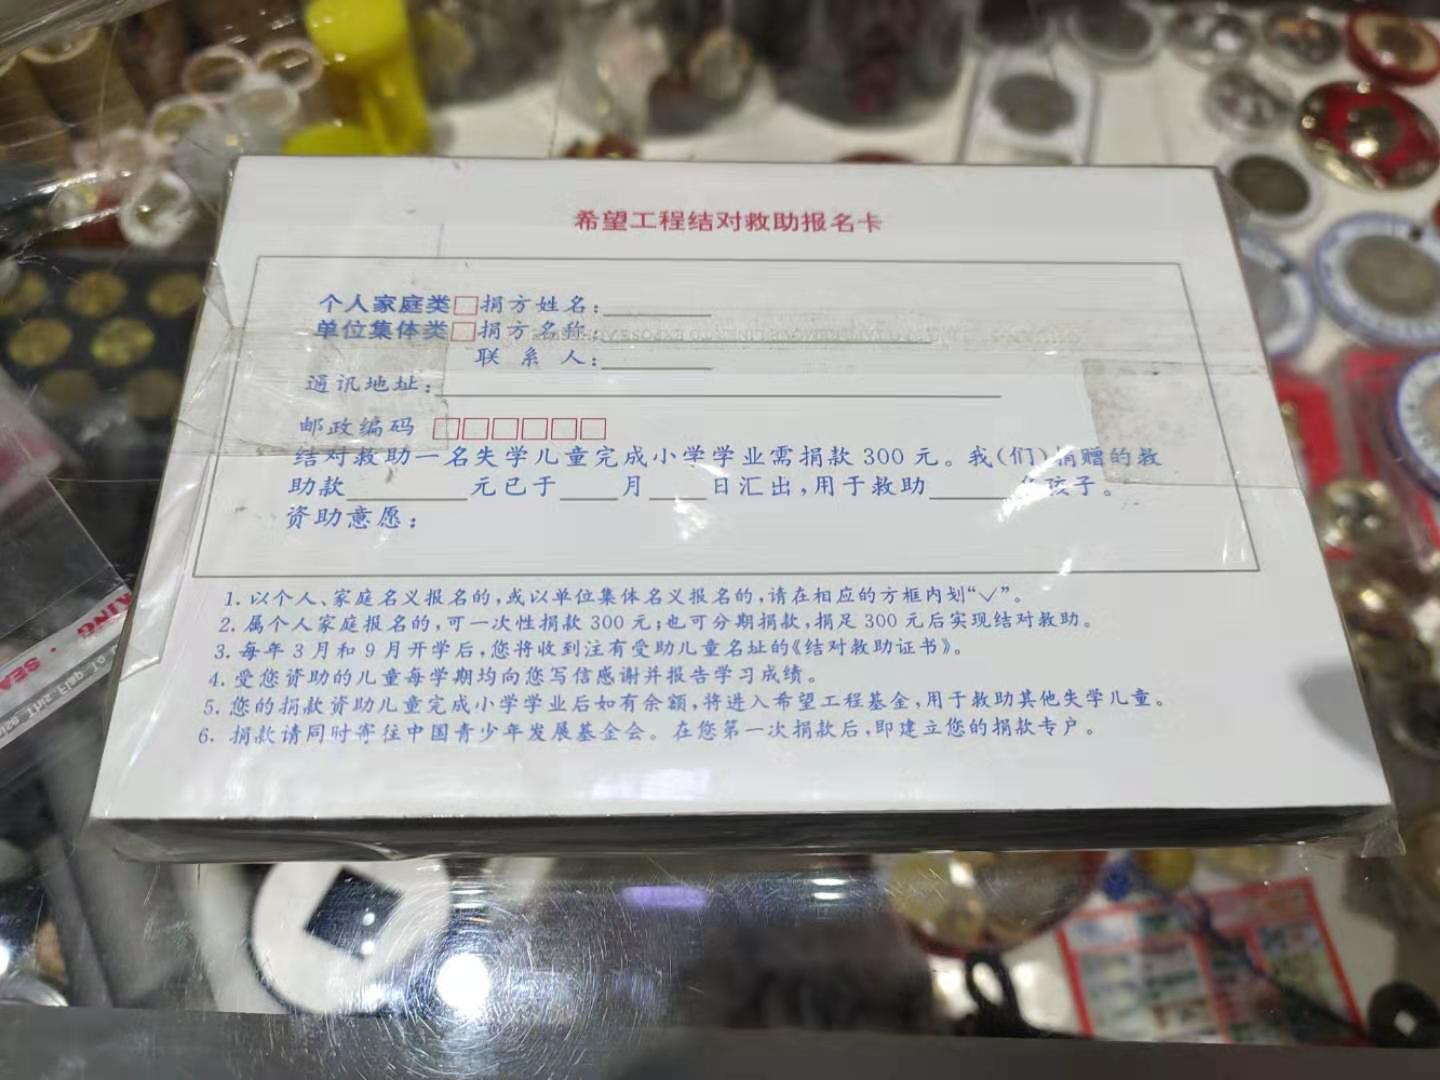 希望工程结对救助报名卡
个人家庭类□捐方姓名：
单位集体类□捐方名称：
联 系 人：
通讯地址：
邮政编码 □□□□□□
结对救助一名失学儿童完成小学学业需捐款 300 元。我(们)捐赠的救
助款______元已于___月___日汇出,用于救助____孩子。
资助意愿：
1. 以个人、家庭名义报名的,或以单位集体名义报名的,请在相应的方框内划“√”。
2. 属个人家庭报名的,可一次性捐款 300 元;也可分期捐款,捐足 300 元后实现结对救助。
3. 每年 3 月和 9 月开学后,您将收到注有受助儿童名址的《结对救助证书》。
4. 受您资助的儿童每学期均向您写信感谢并报告学习成绩。
5. 您的捐款资助儿童完成小学学业后如有余额,将进入希望工程基金,用于救助其他失学儿童。
6. 捐款请同时寄往中国青少年发展基金会。在您第一次捐款后,即建立您的捐款专户。